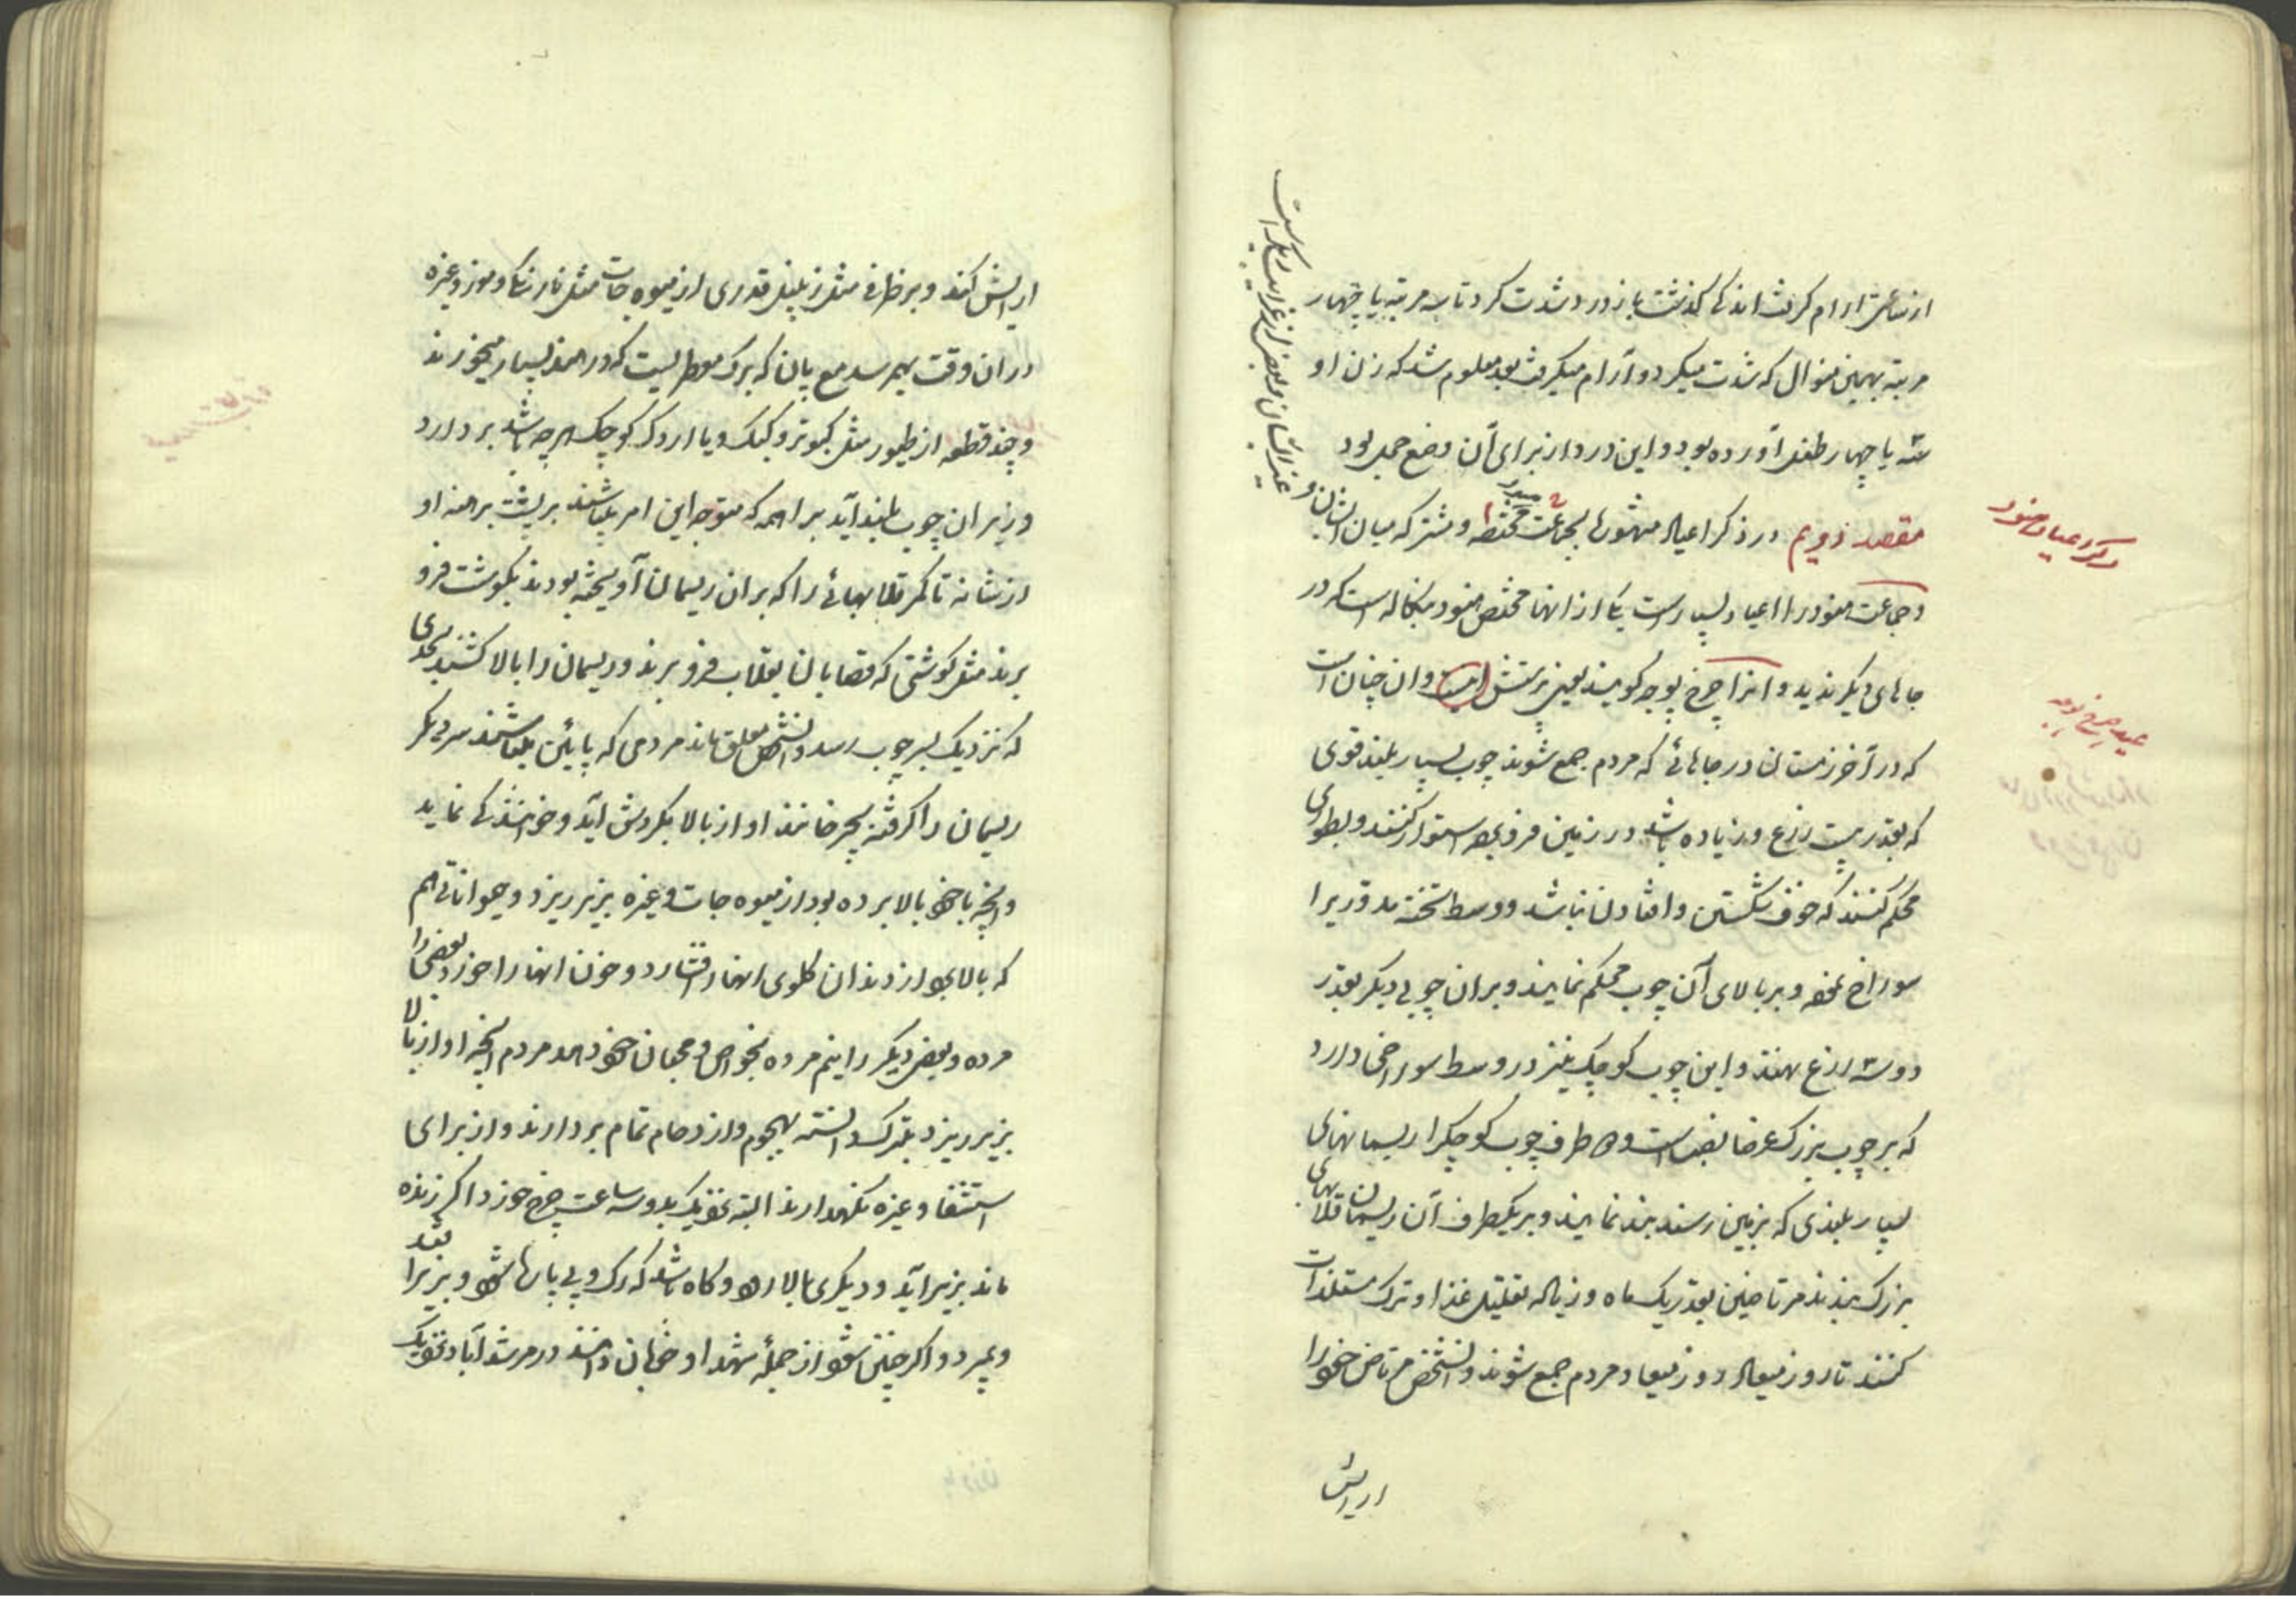 از ساعتی آرام گرفت اندکی گذشت باز درد شدت کرد تا سه مرتبه یا چهار
مرتبه بهمین منوال که شدت میکرد و آرام میگرفت بعد معلوم شد که زن او
سه یا چهار طفل آورده بود و این درد از برای آن وضع حمل بود
مقصد دویم در ذکر اعیاد مشهوره بجماعت هنود مختصه و مشترکه میان ایشان و
غیر ایشان و بعض از غرایب دیگر است
ذکر اعیاد هنود
و جماعت هنود را اعیاد بسیار است یکی از انها مختص هنود بنگاله است که در
جاهای دیگر ندیدم و انرا چرخ پوجه گویند یعنی پرستش و آن چنان است
عید چرخ پوجه
که در آخر زمستان در جاهائی که مردم جمع شوند چوب بسیار بلند قوی
که بقدر بیست ذرع و زیاده باشد در زمین فرو برده استوار کنند و بطوری
محکم کنند که خوف شکستن و افتادن نباشد و وسط تخته مدوّریرا
سوراخ نموده و بر بالای آن چوب محکم نمایند و بران چوبی دیگر بقدر
دو سه ذرع نهند و این چوب کوچک نیز در وسط سوراخی دارد
که بر چوب بزرگ عرضا نصب است و دو طرف چوب کوچک را ریسمانهای
بسیار بلندی که بزمین رسند بند نمایند و بر یکطرف آن ریسمان قلابهای
بزرگ بندند مرتاضین بقدر یک ماه و زیاده تقلیل غذا و ترک مستلذات
کنند تا روز میعاد و روز میعاد مردم جمع شوند و آنشخص مرتاض خود را
آرایش
آرایش کند و بر ظرفی مثل زنبیل قدری از میوه جات مثل نارنگی و موز و غیره
در ان وقت بهم رسد مع پان که برگ معطریست که در هند بسیار میخورند
و چند قطعه از طیور مثل کبوتر و کبک و یا اردک کوچک هر چه باشد بردارد
و زیر ان چوب بلند آید براهمه که متوجه این امر میباشند بر پشت برهنه او
از شانه تا کمر قلابهائی را که بران ریسمان آویخته بودند بگوشت فرو
برند مثل گوشتی که قصابان بقلاب فرو برند و ریسمان را بالا کشند بحدی
که نزدیک بسر چوب رسد و آنشخص معلق ماند مردمی که پائین میباشند سر دیگر
ریسمان را گرفته بچرخانند او از بالا بگردش آید و خوانندگی نماید
و آنچه با خود بالا برده بود از میوه جات و غیره بزیر ریزد و حیواناتی هم
که بالا برده از دندان گلوی انها را فشارد و خون انها را خورد بعضی را
مرده و بعض دیگر را نیم مرده بخواص و محبان خود دهد مردم آنچه او از بالا
بزیر ریزد تبرک دانسته بهجوم و ازدحام تمام بردارند و از برای
استشفا و غیره نگهدارند البته نزدیک بدو سه ساعت چرخ خورد اگر زنده
ماند بزیر آید و دیگری بالا رود و گاه باشد که رگ و پی پاره شود و بزیر افتد
و بمیرد و اگر چنین شود از جملهٔ شهدا و خوبان دانند در مرشدآباد نزدیک